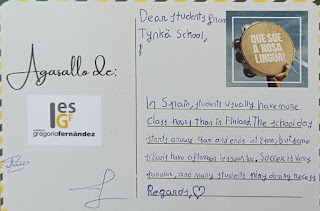 Dear students from
Tynkä School,
QUE SOE
A NOSA
LINGUA!
Agasallo de:
Ies
GF
instituto
gregoriofernández
In Spain, students usually have more
class hours than in Finland. The school day
starts around 9am and ends at 2pm, but some
schools have afternoon lessons too. Soccer is very
popular, and many students play during recess!
Regards,